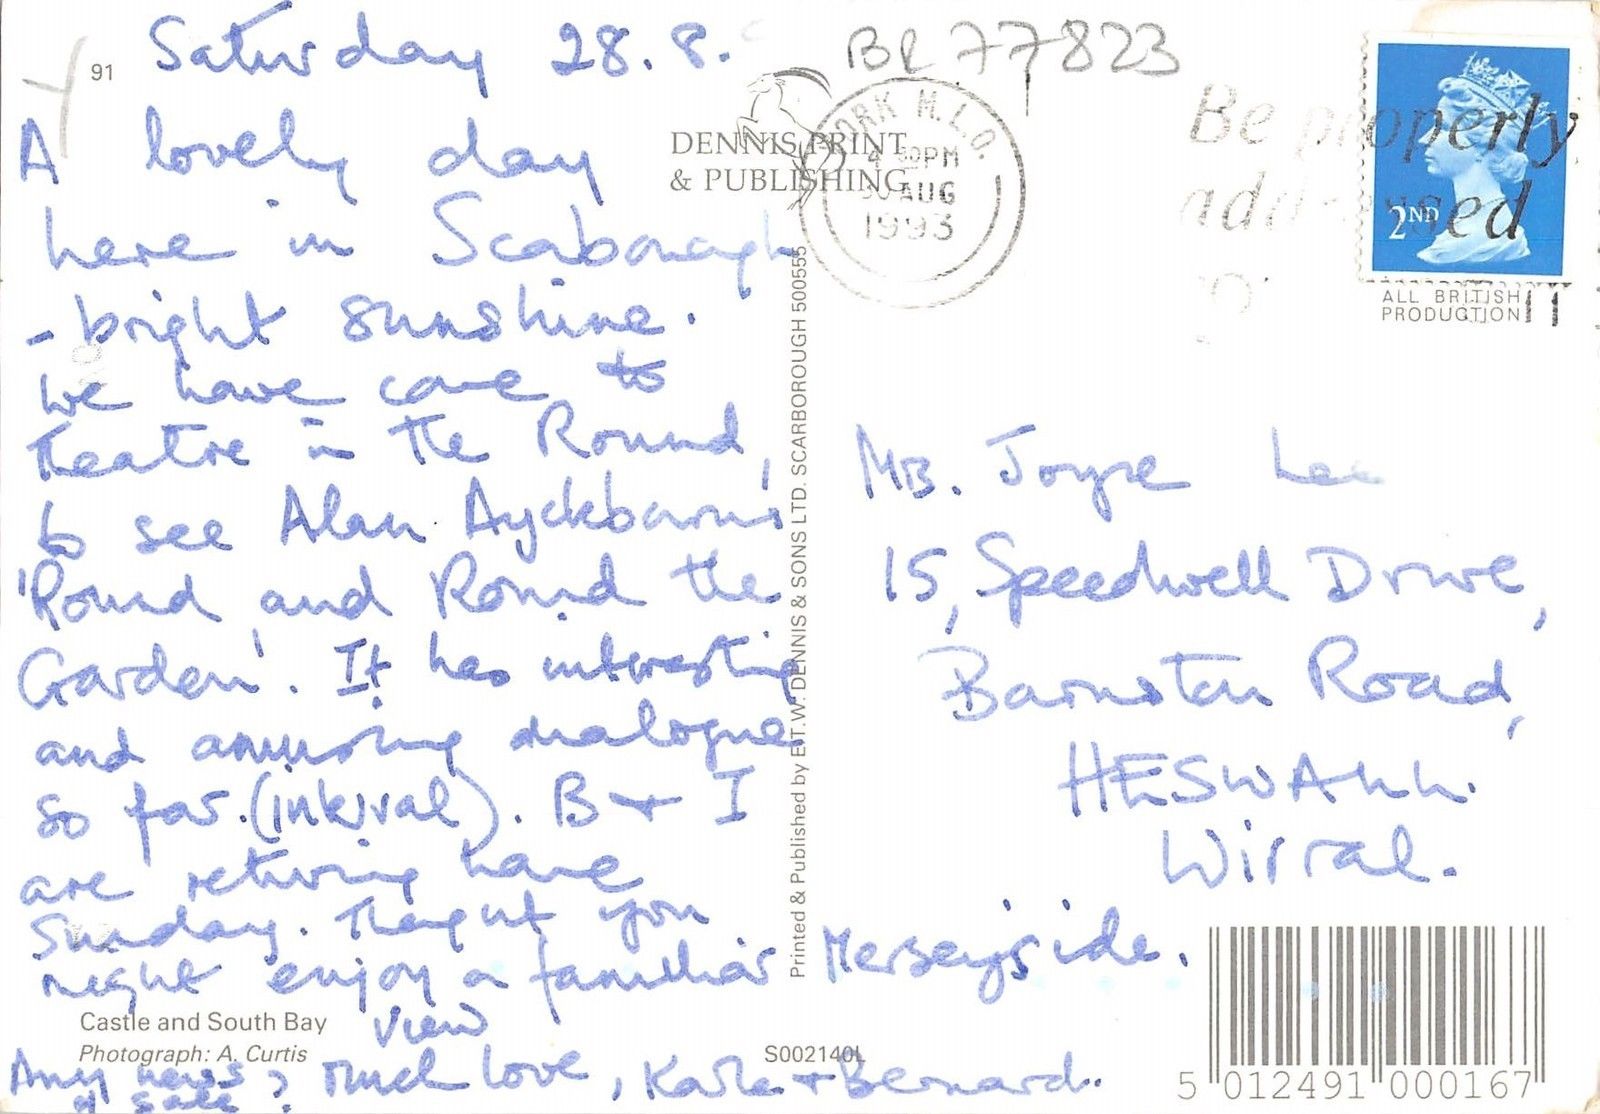 91
Saturday 28.8.
A lovely day
here in Scaborough
- bright sunshine.
We have come to
Theatre in the Round,
to see Alan Ayckbourn's
'Round and Round the
Garden'. It has interesting
and amusing dialogue
so far. (interval). B + I
are returning home
Sunday. Thought you
might enjoy a familiar
view
Any news of sale? Much love, Karla + Bernard.
Castle and South Bay
Photograph: A. Curtis
BL 77823
DENNIS PRINT
& PUBLISHING
YORK M.L.O.
4 00PM
30 AUG
1993
Be properly
addressed
2ND
ALL BRITISH
PRODUCTION
Printed & Published by E.T.W. DENNIS & SONS LTD. SCARBOROUGH 500555
Mrs. Joyce Lee
15, Speedwell Drive,
Barnston Road,
HESWALL.
Wirral.
Merseyside.
S002140L
5 012491 000167